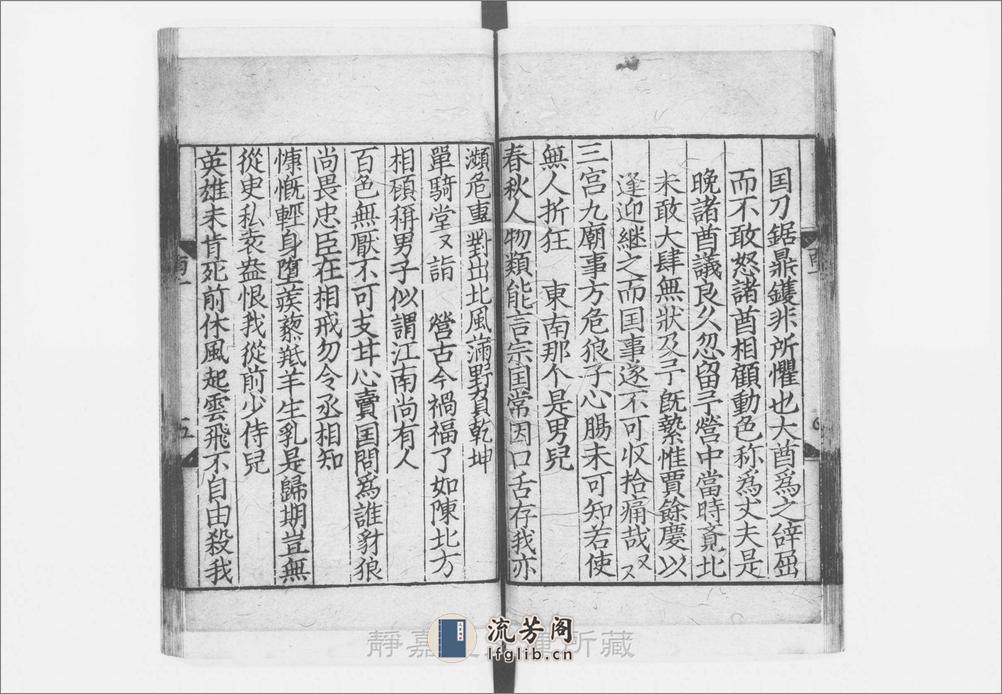 囯刀鋸鼎鑊非所懼也大酋爲之辝屈
而不敢怒諸酋相顧動色称爲丈夫是
晚諸酋議良久忽留予營中當時覔北
未敢大肆無狀及予旣縶惟賈餘慶以
逢迎継之而囯事遂不可収拾痛哉又又
三宫九廟事方危狼子心腸未可知若使
無人折狂 東南那个是男兒
春秋人物類能言宗囯常因口舌存我亦
瀕危重對出北風滿野負乾坤
單騎堂又詣 營古今禍福了如陳北方
相頋稱男子似謂江南尚有人
百色無厭不可支甘心賣囯問爲誰豺狼
尚畏忠臣在相戒勿令丞相知
慷慨輕身墮蒺蔾羝羊生乳是歸期豈無
從史私袁盎恨我從前少侍兒
英雄未肯死前休風起雲飛不自由殺我
五
流芳阁
lfglib.cn
靜嘉 所藏